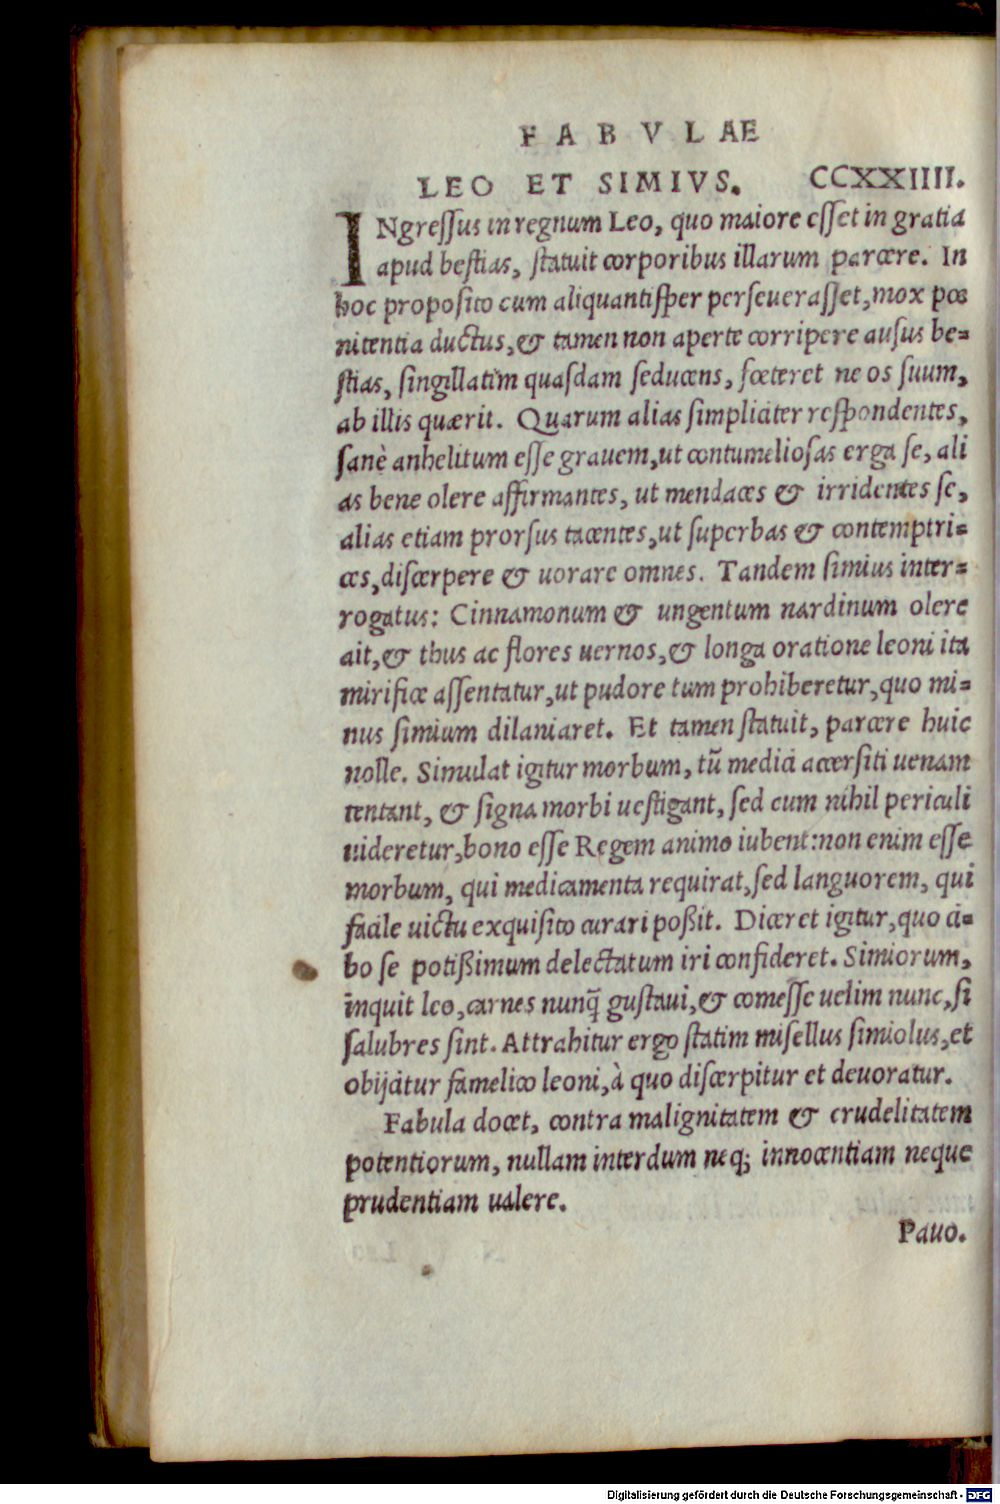 FABVLAE
LEO ET SIMIVS. CCXXIIII.
INgreſſus in regnum Leo, quo maiore eſſet in gratia
apud beſtias, ſtatuit corporibus illarum parcere. In
hoc propoſito cum aliquantiſper perſeueraſſet, mox pœ
nitentia ductus, & tamen non aperte corripere auſus be=
ſtias, ſingillatim quaſdam ſeducens, fœteret ne os ſuum,
ab illis quærit. Quarum alias ſimpliciter reſpondentes,
ſanè anhelitum eſſe grauem, ut contumelioſas erga ſe, ali
as bene olere affirmantes, ut mendaces & irridentes ſe,
alias etiam prorſus tacentes, ut ſuperbas & contemptri=
ces, diſcerpere & uorare omnes. Tandem ſimius inter=
rogatus: Cinnamonum & ungentum nardinum olere
ait, & thus ac flores uernos, & longa oratione leoni ita
mirifice aſſentatur, ut pudore tum prohiberetur, quo mi=
nus ſimium dilaniaret. Et tamen ſtatuit, parcere huic
nolle. Simulat igitur morbum, tū medici accerſiti uenam
tentant, & ſigna morbi ueſtigant, ſed cum nihil periculi
uideretur, bono eſſe Regem animo iubent: non enim eſſe
morbum, qui medicamenta requirat, ſed languorem, qui
facile uictu exquiſito curari poßit. Diceret igitur, quo ci=
bo ſe potißimum delectatum iri confideret. Simiorum,
inquit leo, carnes nunq̄ guſtaui, & comeſſe uelim nunc, ſi
ſalubres ſint. Attrahitur ergo ſtatim miſellus ſimiolus, et
obijcitur famelico leoni, à quo diſcerpitur et deuoratur.
Fabula docet, contra malignitatem & crudelitatem
potentiorum, nullam interdum neq; innocentiam neque
prudentiam ualere.
Pauo.
Digitalisierung gefördert durch die Deutsche Forschungsgemeinschaft - DFG